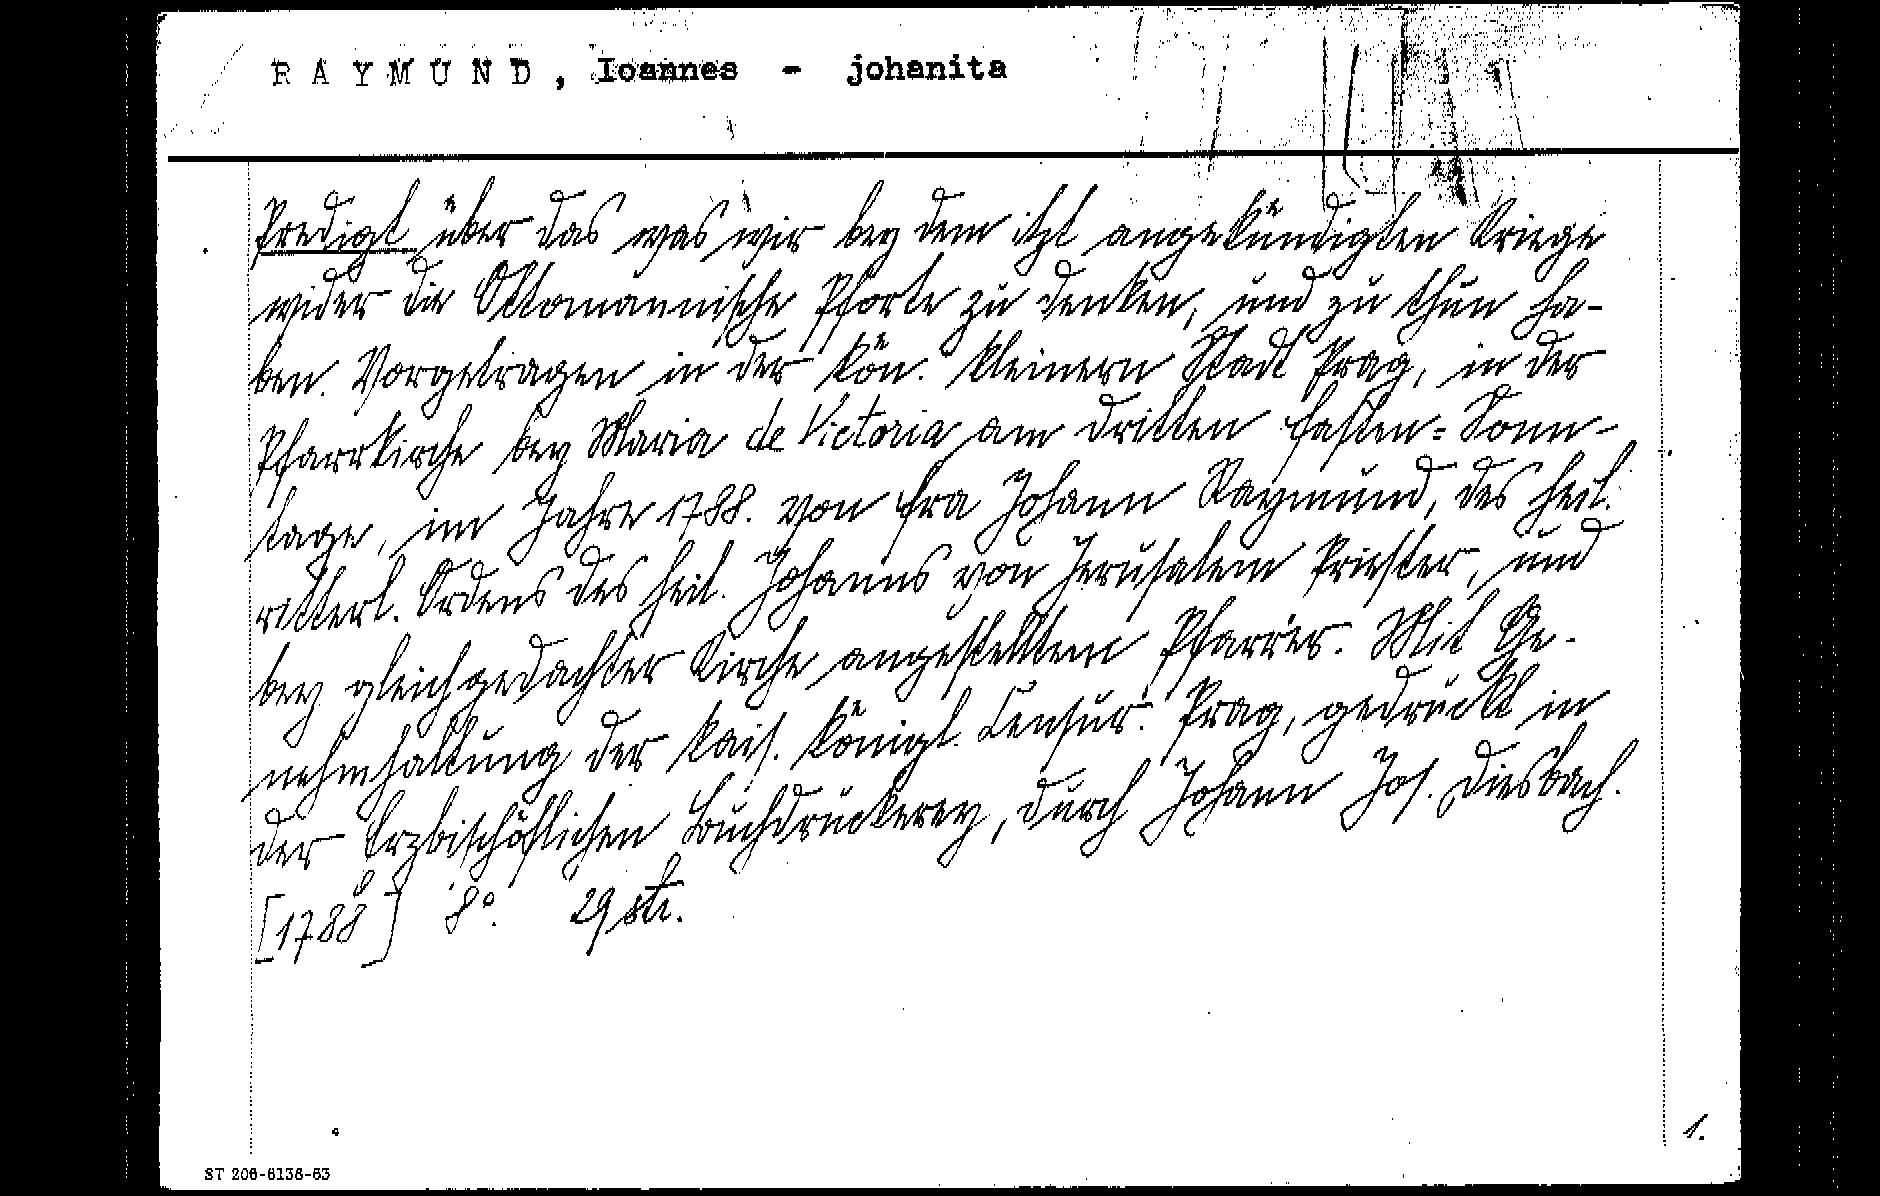 RAYMUND, Ioannes - johanita
Predigt über das was wir bey dem itzt angekündigten Kriege
wider die Ottomannische Pforte zu denken, und zu thun ha-
ben. Vorgetragen in der kön. kleinern Stadt Prag, in der
Pfarrkirche bey Maria de Victoria am dritten Fasten=Sonn-
tage, im Jahre 1788. von Fra Johann Raymund, des heil.
ritterl. Ordens des heil. Johanns von Jerusalem Priester, und
bey gleichgedachter Kirche angestelltem Pfarrer. Mit Ge-
nehmhaltung der kais. königl. Censur. Prag, gedruckt in
der Erzbischöflichen Buchdruckerey, durch Johann Jos. Diesbach.
[1788] 8°. 29 str.
1.
ST 206-6136-63